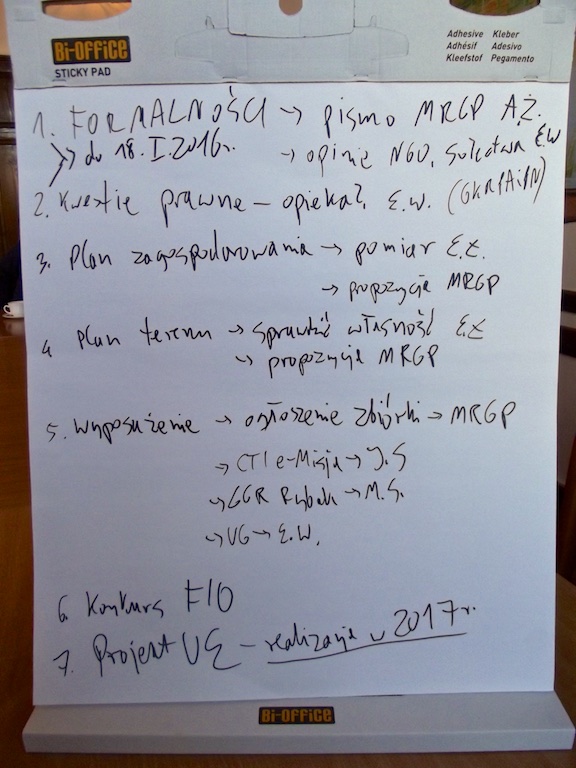 Bi-OFFiCE
STICKY PAD
Adhesive Kleber
Adhésif Adesivo
Kleefstof Pegamento
1. FORMALNOŚCI → pismo MRGP A.Ż.
>> do 18.I.2016r. → opinie NGO, Sołectwa E.W
2. Kwestie prawne – opieka?, E.W. (GKRPAiPN)
3. Plan zagospodarowania → pomiar E.Ł.
→ propozycje MRGP
4 Plan terenu → sprawdzić własność E.Ł
→ propozycje MRGP
5. Wyposażenie → ogłoszenie zbiórki → MRGP
→ CTI e-Misja → J.S
→ CGR Rybak → M.S.
→ UG → E.W.
6. Konkurs FIO
7. Projekt UE – realizacja w 2017r.
Bi-OFFiCE